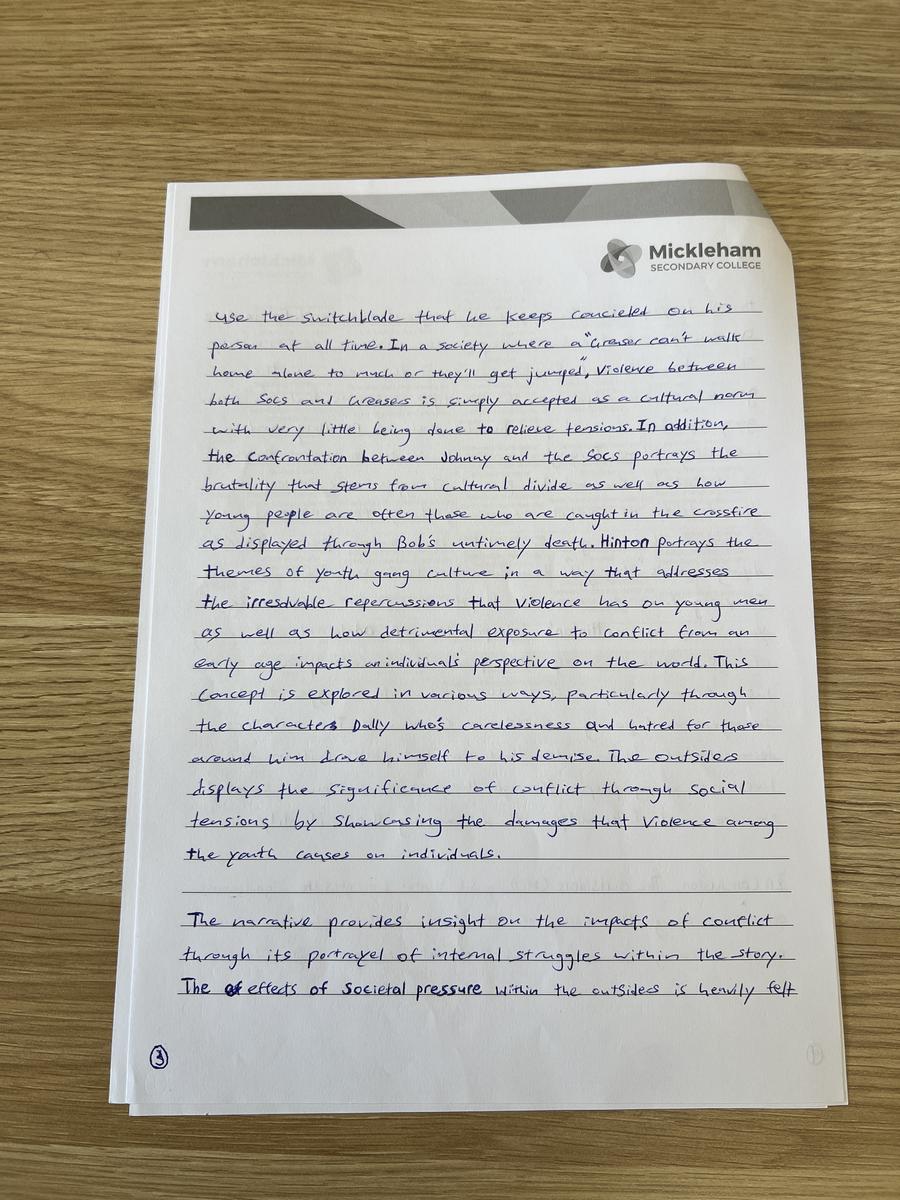 Mickleham
SECONDARY COLLEGE
use the switchblade that he keeps concieled on his
person at all time. In a society where a "Greaser can't walk
home alone to much or they'll get jumped", Violence between
both Socs and Greasers is simply accepted as a cultural norm
with very little being done to relieve tensions. In addition,
the confrontation between Johnny and the Socs portrays the
brutality that stems from cultural divide as well as how
young people are often those who are caught in the crossfire
as displayed through Bob's untimely death. Hinton portrays the
themes of youth gang culture in a way that addresses
the irresolvable repercussions that violence has on young men
as well as how detrimental exposure to conflict from an
early age impacts an individual's perspective on the world. This
concept is explored in various ways, particularly through
the characters Dally who's carelessness and hatred for those
around him drove himself to his demise. The outsiders
displays the significance of conflict through social
tensions by showcasing the damages that violence among
the youth causes on individuals.
The narrative provides insight on the impacts of conflict
through its portrayel of internal struggles within the story.
The effects of societal pressure within the outsiders is heavily felt
3